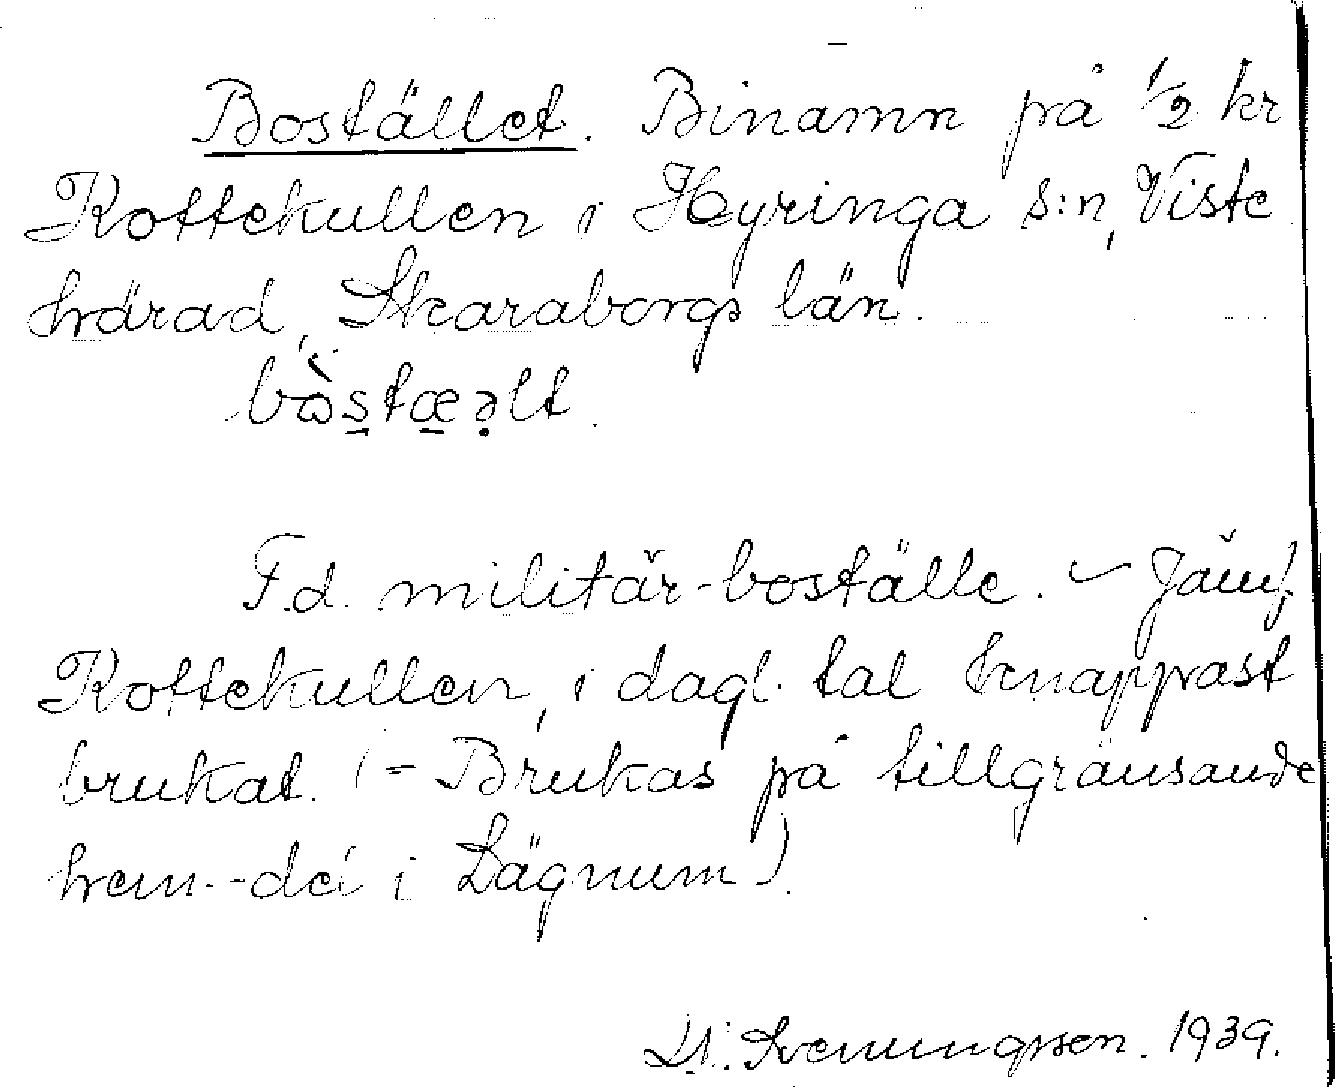 Bostället. Binamn på 1/2 kr
Kottekullen i Hyringa s:n, Viste
härad, Skaraborgs län.
Fd. militär-boställe. – Jämf.
Kottekullen, i dagl. tal knappast
brukat. (- Brukas på tillgränsande
hem--del i Lägnum).
Svenungsson. 1939.